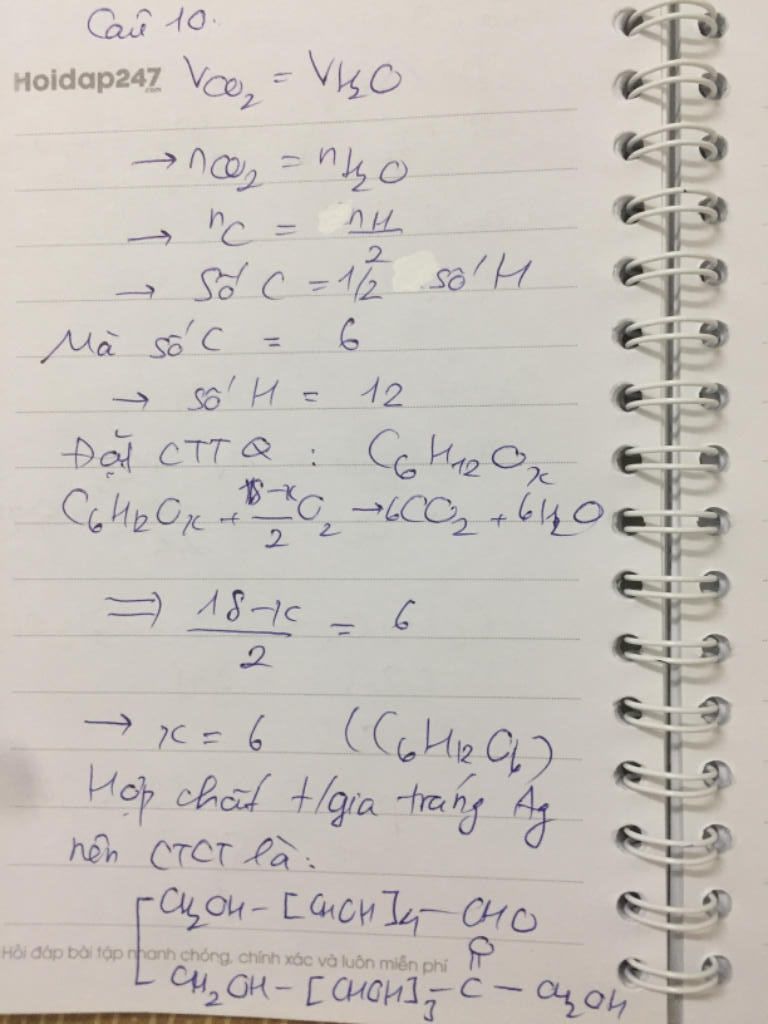 Câu 10.
Hoidap247.com
VCO₂ = VH₂O
→ nCO₂ = nH₂O
→ nC = nH/2
→ Số C = 1/2 số H
Mà số C = 6
→ số H = 12
Đặt CTTQ : C₆H₁₂Oₓ
C₆H₁₂Oₓ + (18-x)/2 O₂ → 6CO₂ + 6H₂O
⇒ (18-x)/2 = 6
→ x = 6 (C₆H₁₂O₆)
Hợp chất t/gia tráng Ag
nên CTCT là:
CH₂OH - [CHOH]₄ - CHO
Hỏi đáp bài tập nhanh chóng, chính xác và luôn miễn phí
O
CH₂OH - [CHOH]₃ - C - CH₂OH